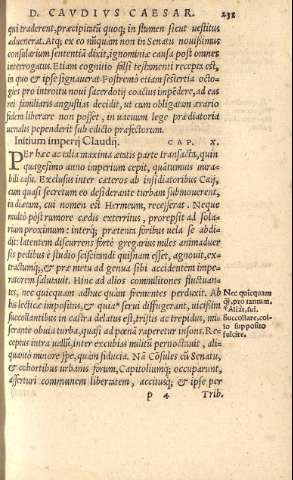 D. CAVDIVS CAESAR. 232
qui traderent, præcipitũ quoq; in flumen sicut uestitus
aduenerat. Atq; ex eo nũquam non in Senatu nouissimus
consularium sententiã dixit, ignominiæ causa post omnes
interrogatus. Etiam cognitio falsi testamenti recepta est,
in quo & ipse signauerat. Postremò etiam sestertiũ octo-
gies pro introitu noui sacerdotij coactus impẽdere, ad eas
rei familiaris angustias decidit, ut cum obligatam ærario
fidem liberare non posset, in uacuum lege prædiatoria
uenalis pependerit sub edicto præfectorum.
Initium imperij Claudij. CAP. X.
PEr hæc ac talia maxima ætatis parte transacta, quin
quagesimo anno imperium cepit, quãtumuis mira-
bili casu. Exclusus inter cæteros ab insidiatoribus Caij,
cum quasi secretum eo desyderante turbam submouerent,
in diætam, cui nomen est Hermeum, recesserat. Neque
multò pòst rumore cædis exterritus, prorepsit ad sola-
rium proximum: interq; prætenta foribus uela se abdi-
dit: latentem discurrens fortè gregarius miles animaduer
sis pedibus è studio sciscitandi quisnam esset, agnouit, ex-
tractumq;, & præ metu ad genua sibi accidentem impe-
ratorem salutauit. Hinc ad alios commilitones fluctuan-
tes, nec quicquam adhuc quàm frementes perduxit. Ab
his lecticæ impositus, & quia serui diffugerant, uicissim
succollantibus in castra delatus est, tristis ac trepidus, mi-
serante obuia turba, quasi ad pœnã raperetur insons. Re-
ceptus intra uallũ, inter excubias militũ pernoctauit, ali-
quantò minore spe, quàm fiducia. Nã Cõsules cũ Senatu,
& cohortibus urbanis forum, Capitoliumq; occuparant,
asserturi communem libertatem, accitusq; & ipse per
p 4 Trib.
Nec quicquam
 pro tantum.
Alias, sui.
Succollare, col-
lo supposito
fulcire.